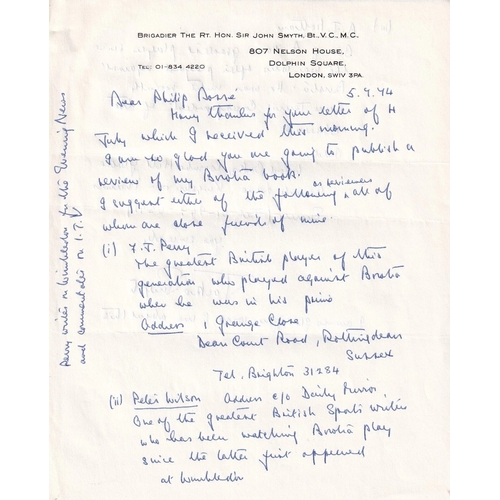 BRIGADIER THE RT. HON. SIR JOHN SMYTH, BT., V.C., M.C.
807 NELSON HOUSE,
DOLPHIN SQUARE,
TEL: 01-834 4220
LONDON, SWIV 3PA.
5.7.74
Dear Philip Dossé
Many thanks for your letter of 4
July which I received this morning.
I am so glad you are going to publish a
review of my Borotra book.
as reviewers
I suggest either of the following, all of
whom are close friends of mine.
(i) F.J. Perry
The greatest British player of this
generation who played against Borotra
when he was in his prime
Address 1 Grange Close
Dean Court Road, Rottingdean
Sussex
Tel. Brighton 31284
(ii) Peter Wilson Address c/o Daily Mirror,
One of the greatest British Sports writers
who has been watching Borotra play
since the latter first appeared
at Wimbledon
Perry writes on Wimbledon for the Evening News
and commentates on I.T.V